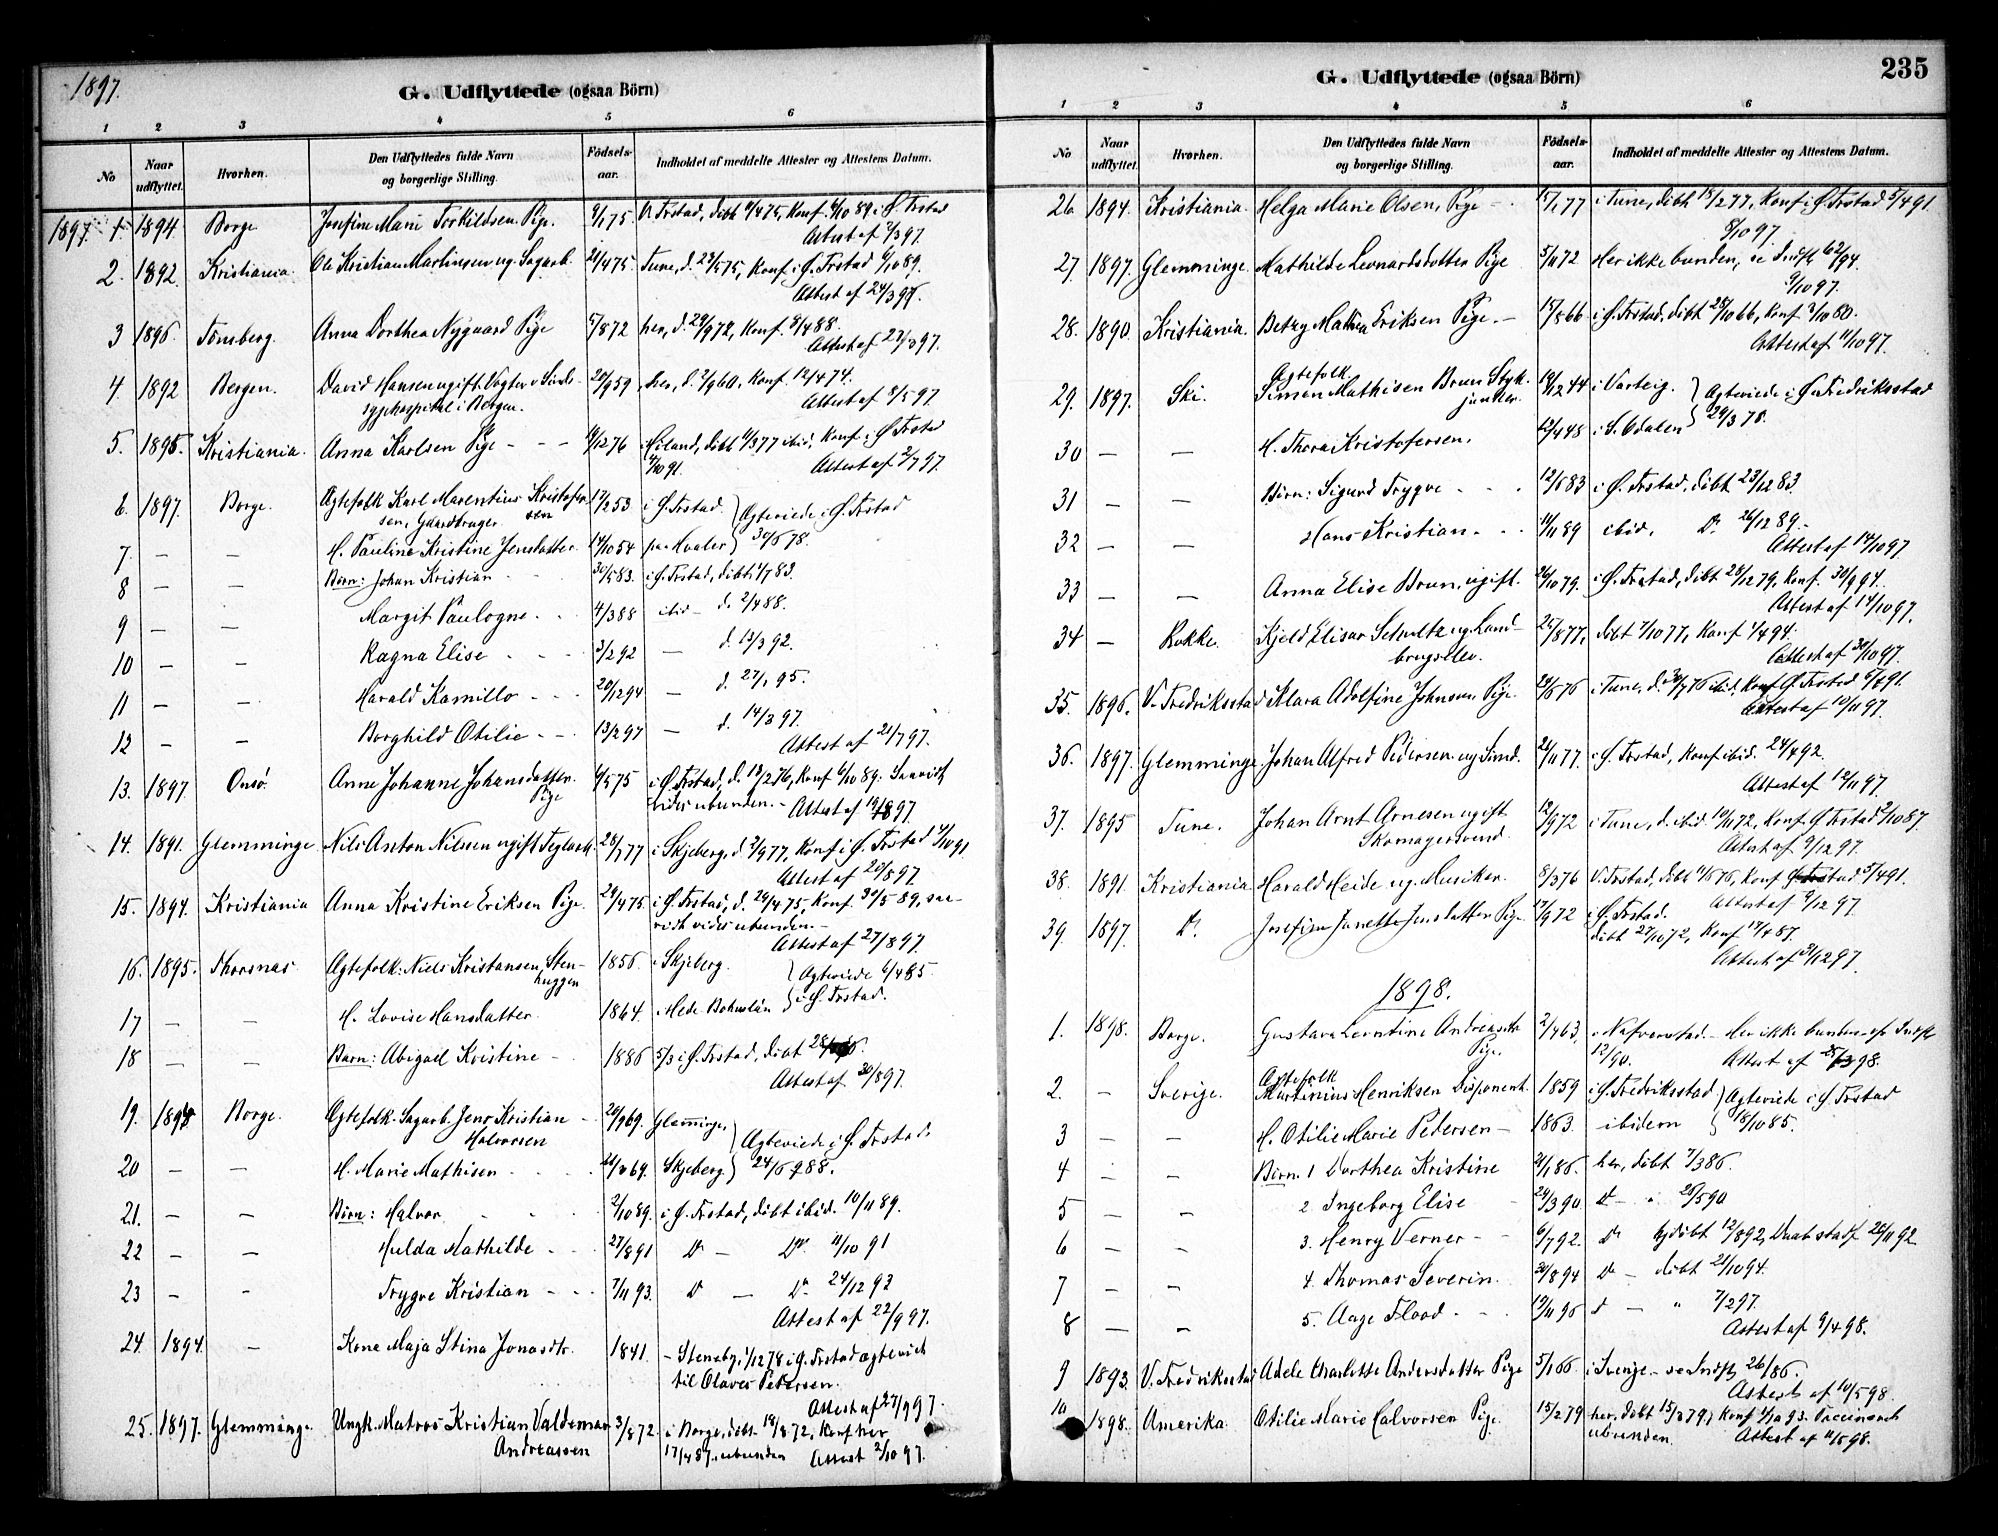 1897.
G. Udflyttede (ogsaa Börn)
1 2 3 4 5 6
No
Naar udflyttet.
Hvorhen.
Den Udflyttedes fulde Navn og borgerlige Stilling.
Fødselsaar.
Indholdet af meddelte Attester og Attestens Datum.
1897. 1. 1894 Borge Josefine Marie Torkildsen Pige. 9/1 75. V. Frstad, döbt 11/4 75, Konf. 6/10 89 i Ø. Frstad
Attest af 2/3 97.
2. 1892. Kristiania. Ole Kristian Martinsen ug. Sagarb. 21/4 75. Tune, d. 23/5 75, Konf. i Ø. Frstad 6/10 89.
Attest af 24/3 97.
3 1896. Tönsberg. Anna Dorthea Nygaard Pige 17/8 72 her, d. 29/9 72, Konf. 8/4 88.
Attest af 23/3 97.
4. 1892 Bergen. David Hansen ugift. Vogter v Sinds- 20/9 59 her, d. 2/9 60. Konf. 12/4 74.
sygehospital i Bergen. Attest af 8/5 97
5. 1895. Kristiania. Anna Karlsen Pige - - - 19/12 76 i Höland, döbt 11/3 77 ibid. Konf. i Ø. Frstad
4/10 91. Attest af 2/7 97.
6. 1897. Borge. Ægtefolk Karl Marentius Kristofer 17/2 53 i Ø. Frstad. } Ægteviede i Ø. Frstad
sen, Gaardbruger
7. - - H. Pauline Kristine Jensdatter. 14/10 54 paa Hvaler } 30/5 78.
8 - - Börn: Johan Kristian - - 30/5 83. i Ø. Frstad, döbt 1/7 83.
9 - - Margit Paulogne - - 4/3 88 ibid - d. 2/4 88.
10 - - Ragna Elise - - - 3/2 92 - d. 13/3 92.
11 - - Harald Kamillo - - - 20/12 94 - d. 27/1 95.
12 - - Borghild Otilie - - - 13/2 97 - d. 14/3 97.
Attest af 21/7 97.
13. 1897. Onsö. Anne Johanne Johansdatter. 6/5 75 i Ø. Frstad, d. 13/2 76, Konf. 6/10 89. Saavidt
Pige vides ubunden. - Attest af 19/8 97.
14. 1891. Glemminge Nils Anton Nilssen ugift Teglarb. 28/1 77 i Skjeberg, d. 2/9 77, Konf. i Ø. Frstad 4/10 91.
Attest af 20/8 97.
15. 1894. Kristiania Anna Kristine Eriksen Pige. 29/4 75. i Ø. Frstad, d. 29/4 75, Konf. 30/5 89, saa-
vidt vides ubunden. -
Attest af 27/8 97.
16. 1895. Thorsnæs. Ægtefolk: Niels Kristansen, Sten- 1856. i Skjeberg. } Ægteviede 6/4 85.
huggen
17 - - H. Lovise Hansdatter. 1864. Hede Bohuslän } i Ø. Frstad.
18 - - Barn: Abigael Kristine - 1886 5/3 i Ø. Frstad, döbt
Attest af 30/8 97.
19. 1894 Borge. Ægtefolk. Sagarb. Jens Kristian - 20/9 69. Glemminge, } Ægteviede i Ø. Frstad.
Halvorsen
20 - - H. Marie Mathisen - - - 69. Skjeberg } 24/6 88.
21. - - Börn: Halvor. - - - 2/10 89. i Ø. Frstad, döbt ibid. 10/11 89.
22 - - Hulda Mathilde - - - 27/8 91 Do - Do 11/10 91
23 - - Trygve Kristian - - - 7/11 93. Do - Do 24/12 93
Attest af 22/9 97.
24. 1894. - Kone Maja Stina Jonasdtr. 1841. - Stensby, 1/12 78 i Ø. Frstad ægteviet
til Olaves Petersen.
Attest af 27/9 97.
25. 1897. Glemminge. Ungk. Matros Kristian Valdemar 3/8 72 i Borge, döbt 18/8 72, Konf. her
Andreassen 17/4 87. ubunden Attest 2/10 97.
G. Udflyttede (ogsaa Börn)
235
1 2 3 4 5 6
No
Naar udflyttet.
Hvorhen.
Den Udflyttedes fulde Navn og borgerlige Stilling.
Fødselsaar.
Indholdet af meddelte Attester og Attestens Datum.
26. 1894. Kristiania. Helga Marie Olsen, Pige - . 15/1 77 i Tune, döbt 18/2 77, Konf. i Ø. Frstad 5/4 91.
8/10 97.
27. 1897. Glemminge. Mathilde Leonardsdotter Pige 5/11 72 Her ikke bunden, se Indfl. 62/94.
9/10 97.
28. 1890. Kristiania. Betzy Mathea Eriksen Pige. - 15/8 66 i Ø. Frstad, döbt 28/10 66, Konf. 3/10 80.
Attest af 11/10 97.
Ægtefolk.
29. 1897. Ski. Simen Mathisen Brun Styk- 19/12 44 i Varteig. } Ægteviede i Ø. Fredriksstad
junker.
30 - - H. Thora Kristofersen. 12/4 48 i S. Odalen } 29/3 78.
31 - Börn: Sigurd Trygve - - - 12/5 83 i Ø. Frstad, döbt 23/12 83.
32 - - Hans Kristian - - - 14/11 89 ibid. Do 26/12 89. -
Attest af 14/10 97.
33 - - Anna Elise Brun, ugift. 26/10 79. i Ø. Frstad, döbt 28/12 79, Konf. 30/9 94.
Attest af 14/10 97.
34 - Rokke. Kjeld Elisar Schultz ug. Land- 25/8 77, döbt 7/10 77, Konf. 1/4 94.
brugselev. Attest af 30/10 97.
35. 1896. V. Fredriksstad Klara Adolfine Johnsen Pige. 24/6 76 i Tune, d. 30/7 76 ibid, Konf. Ø. Frstad 5/4 91.
Attest af 10/11 97.
36. 1897. Glemminge. Johan Alfred Pedersen ug. Smed. 26/11 77. i Ø. Frstad, Konf. ibid. 24/4 92.
Attest af 12/11 97.
37. 1895 Tune. Johan Arnt Arnesen ugift 12/9 72 i Tune, d. ibid. 10/11 72, Konf. Ø Frstad 2/10 87.
Skomagersvend. Attest af 9/12 97.
38. 1891. Kristiania Harald Heide ug. Musiker. 8/3 76 V. Frstad, döbt 11/5 76, Konf. Ø Frstad 5/4 91.
Attest af 9/12 97.
39. 1897. Do Josefine Janette Jensdatter Pige. 17/9 72 i Ø. Frstad.
döbt 27/10 72, Konf. 17/4 87.
Attest af 31/12 97.
1898.
1. 1898. Borge. Gustava Lerntine Andreasdtr. 2/7 63. i Nafverstad. - Her ikke bunden - se Indfl.
Pige. 12/90. Attest af 25/3 98.
Ægtefolk
2. - Sverige. Martinius Henriksen Disponent. 1859 i Ø. Fredriksstad } Ægteviede i Ø. Frstad
3 - - H. Otilie Marie Petersen - 1863. ibidem } 18/10 85.
4 - - Börn. 1 Dorthea Kristine 21/1 86. her, döbt 7/3 86.
5 - - 2 Ingeborg Elise - 29/3 90. Do - " 26/5 90
6 - - 3. Henry Verner - - 6/7 92. Do hjdöbt 12/8 92, Daab stadf. 26/11 92
7 - - 4. Thomas Severin. 30/8 94 Do - döbt 21/10 94.
8 - - 5. Aage Flood - - . 19/11 96 d - " 7/2 97.
Attest af 9/4 98.
9 1893. V. Fredriksstad Adele Charlotte Andersdatter Pige 5/1 66 i Sverige - se Indfl. 26/86.
Attest af 10/5 98.
10 1898. Amerika. Otilie Marie Halvorsen Pige. 15/2 79 her, döbt 13/3 79, Konf. 1/10 93. Vaccineret
ubunden. Attest af 11/5 98.